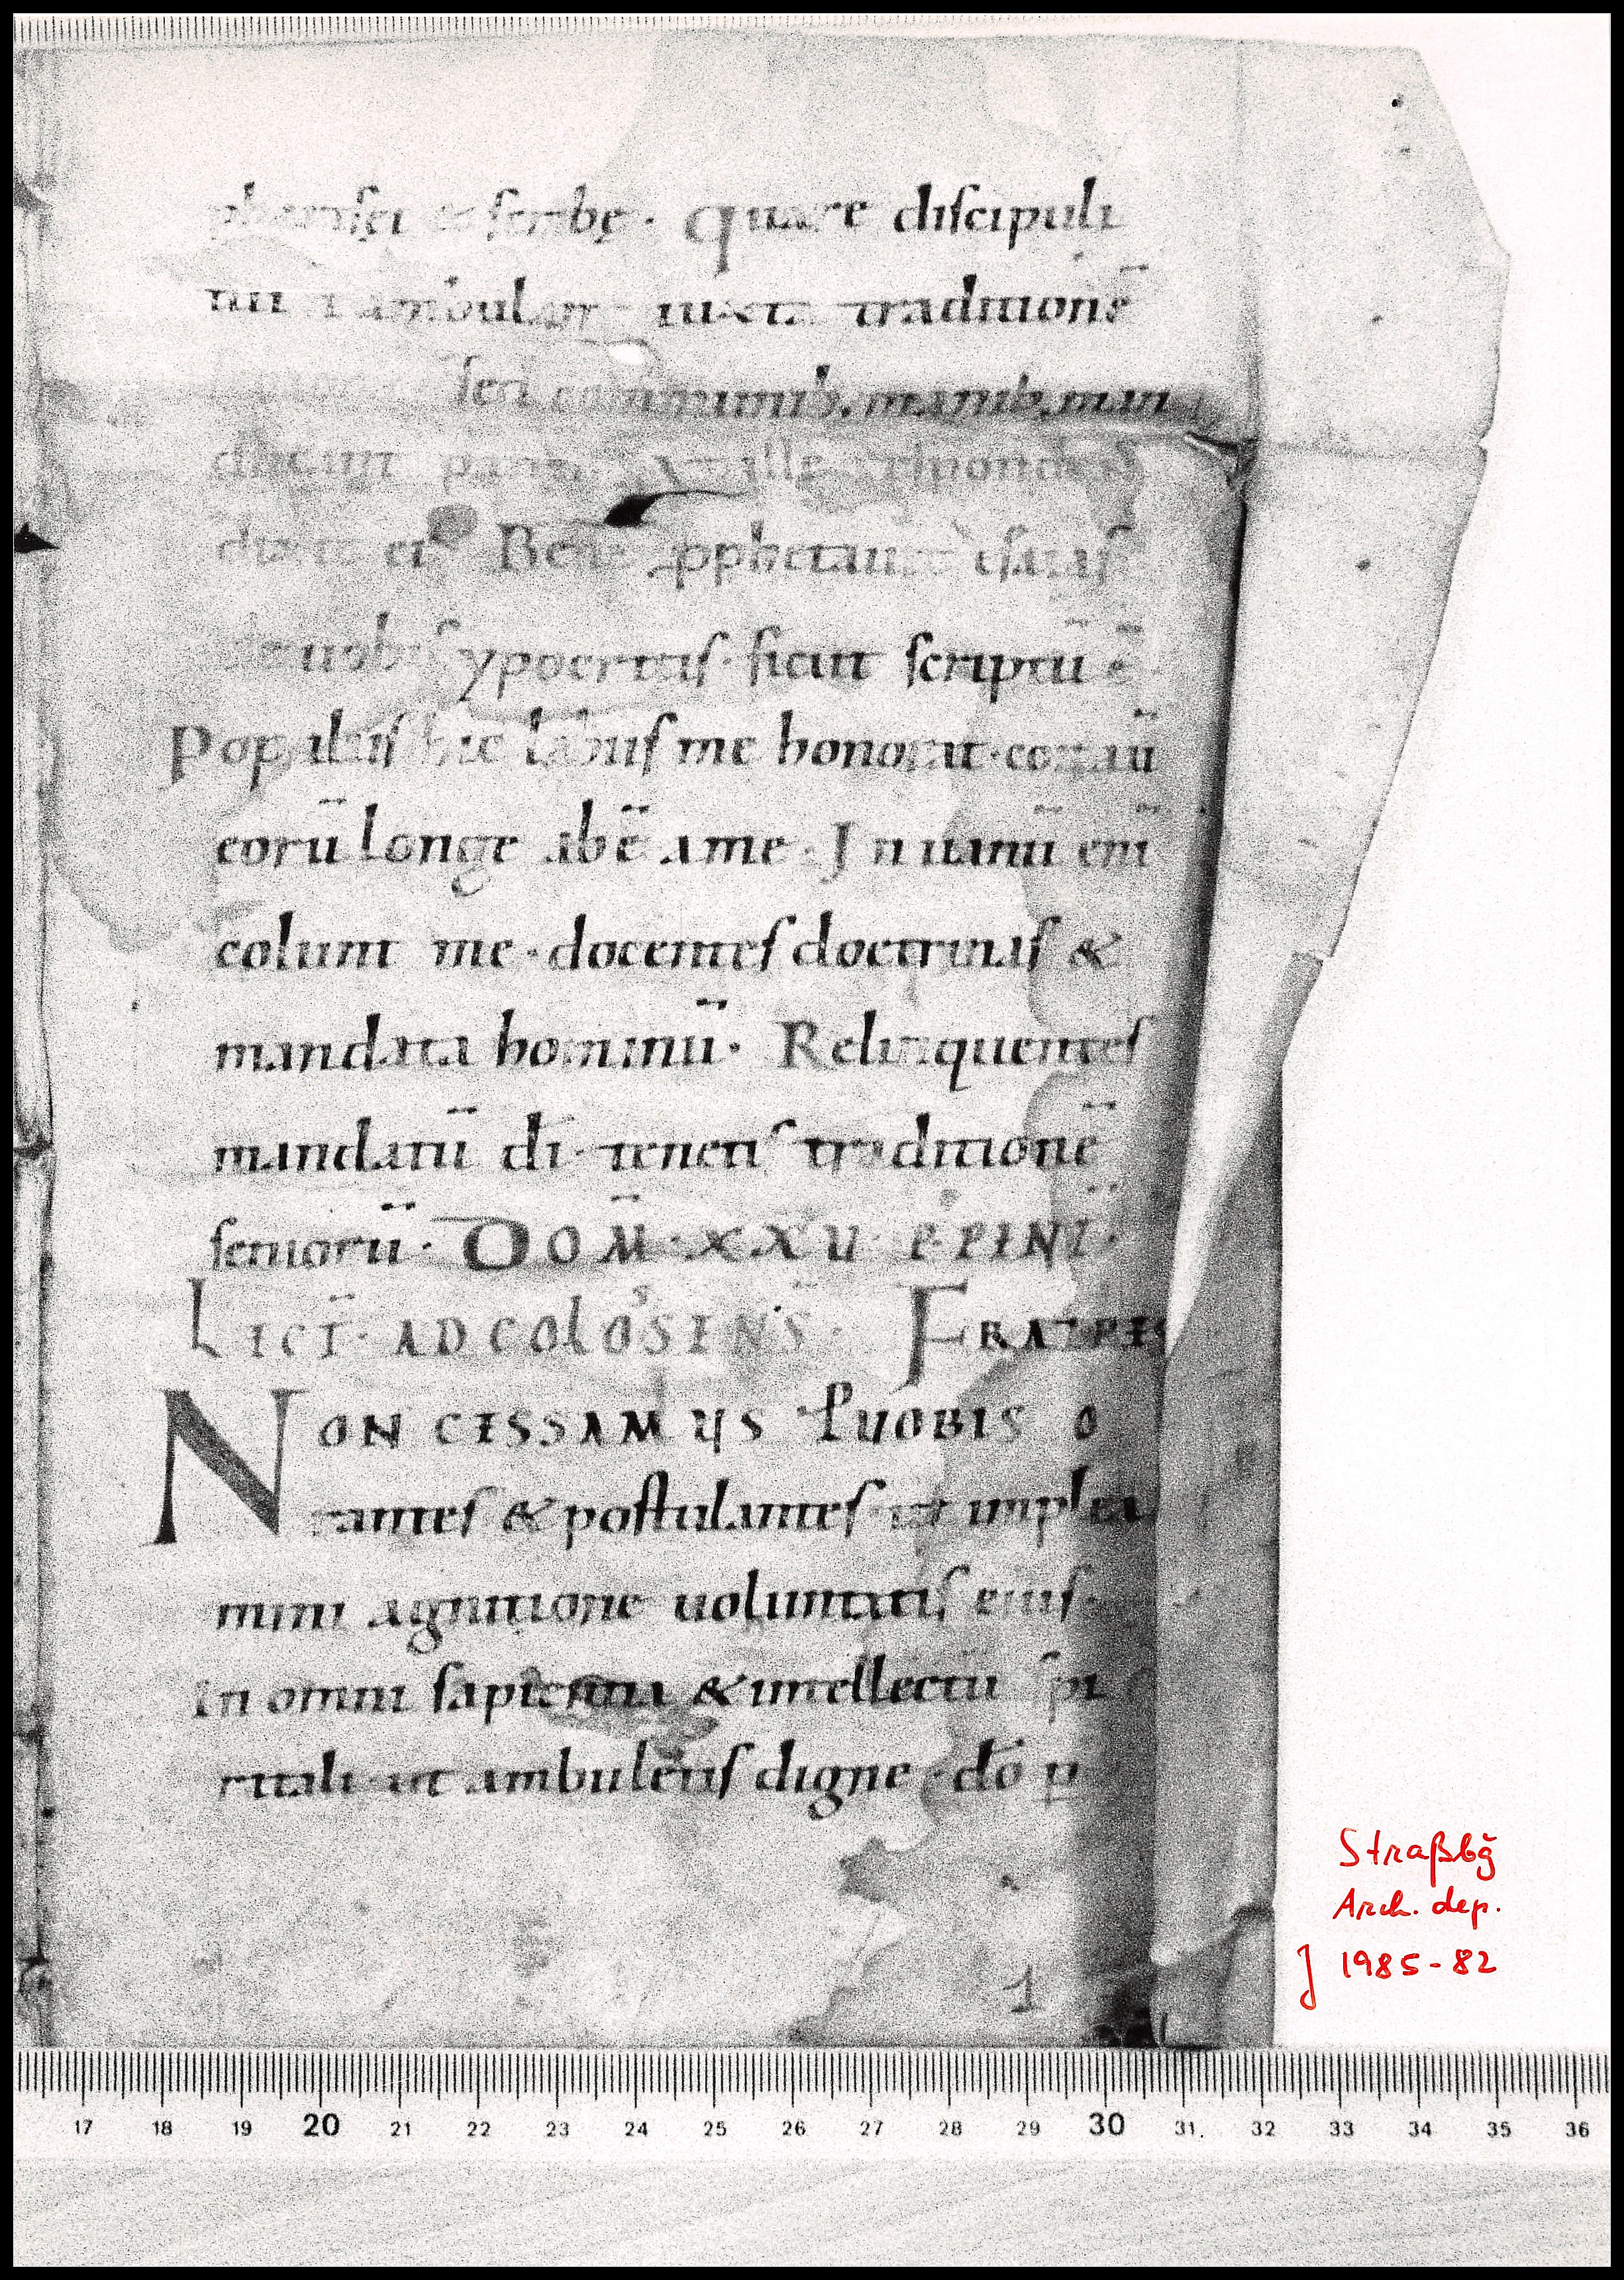 pharisei & scribę. quare discipuli
tui ambulant iuxta traditionē
sed cōmunib; manib; man
ducunt ille respondens
dixit eis Bene pphetauit isaias
de uobis ypocritis. sicut scriptū ē
Populus hic labiis me honorat. cor aū
eorū longe abē a me. In uanū eni
colunt me. docentes doctrinas &
mandata hominū. Relinquentes
mandatū di. tenetis traditionē
seniorū. DOM̄. XXV P. PENT.
LECT. AD COLOSENS. FRATRES
NON CESSAMUS P UOBIS O
rantes & postulantes ut implea
mini agnitione uoluntatis eius.
In omni sapientia & intellectu spi
ritali ut ambuletis digne dō p
1
Straßbg
Arch. dep.
J 1985-82
17 18 19 20 21 22 23 24 25 26 27 28 29 30 31 32 33 34 35 36